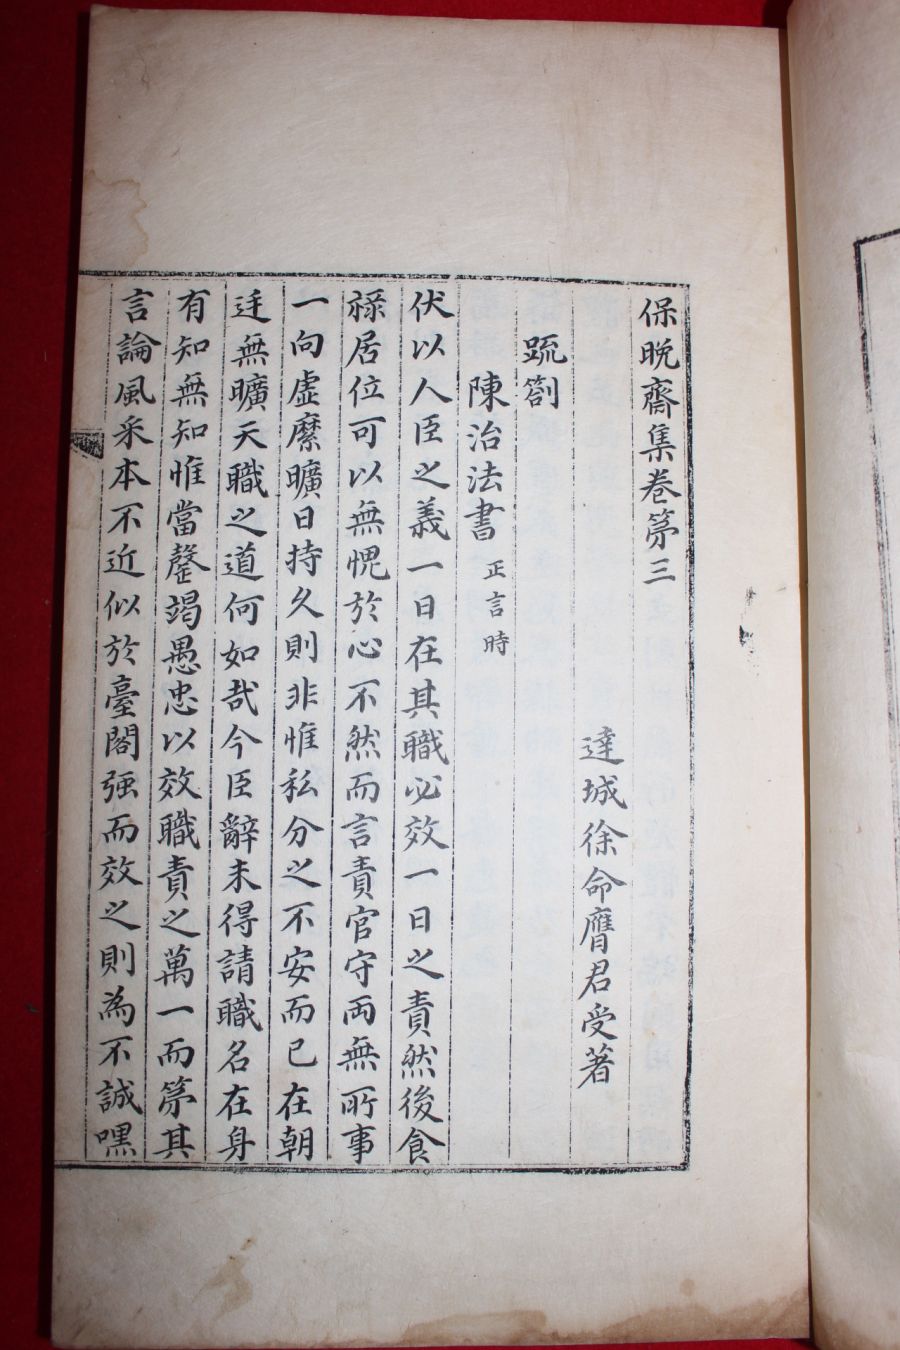 保晩齋集卷第三
達城徐命膺君受著
疏劄
陳治法書 正言時
伏以人臣之義一日在其職必效一日之責然後食
祿居位可以無愧於心不然而言責官守両無所事
一向虛縻曠日持久則非惟私分之不安而已在朝
廷無曠天職之道何如哉今臣辭未得請職名在身
有知無知惟當罄竭愚忠以效職責之萬一而第其
言論風采本不近似於臺閣强而效之則為不誠嘿